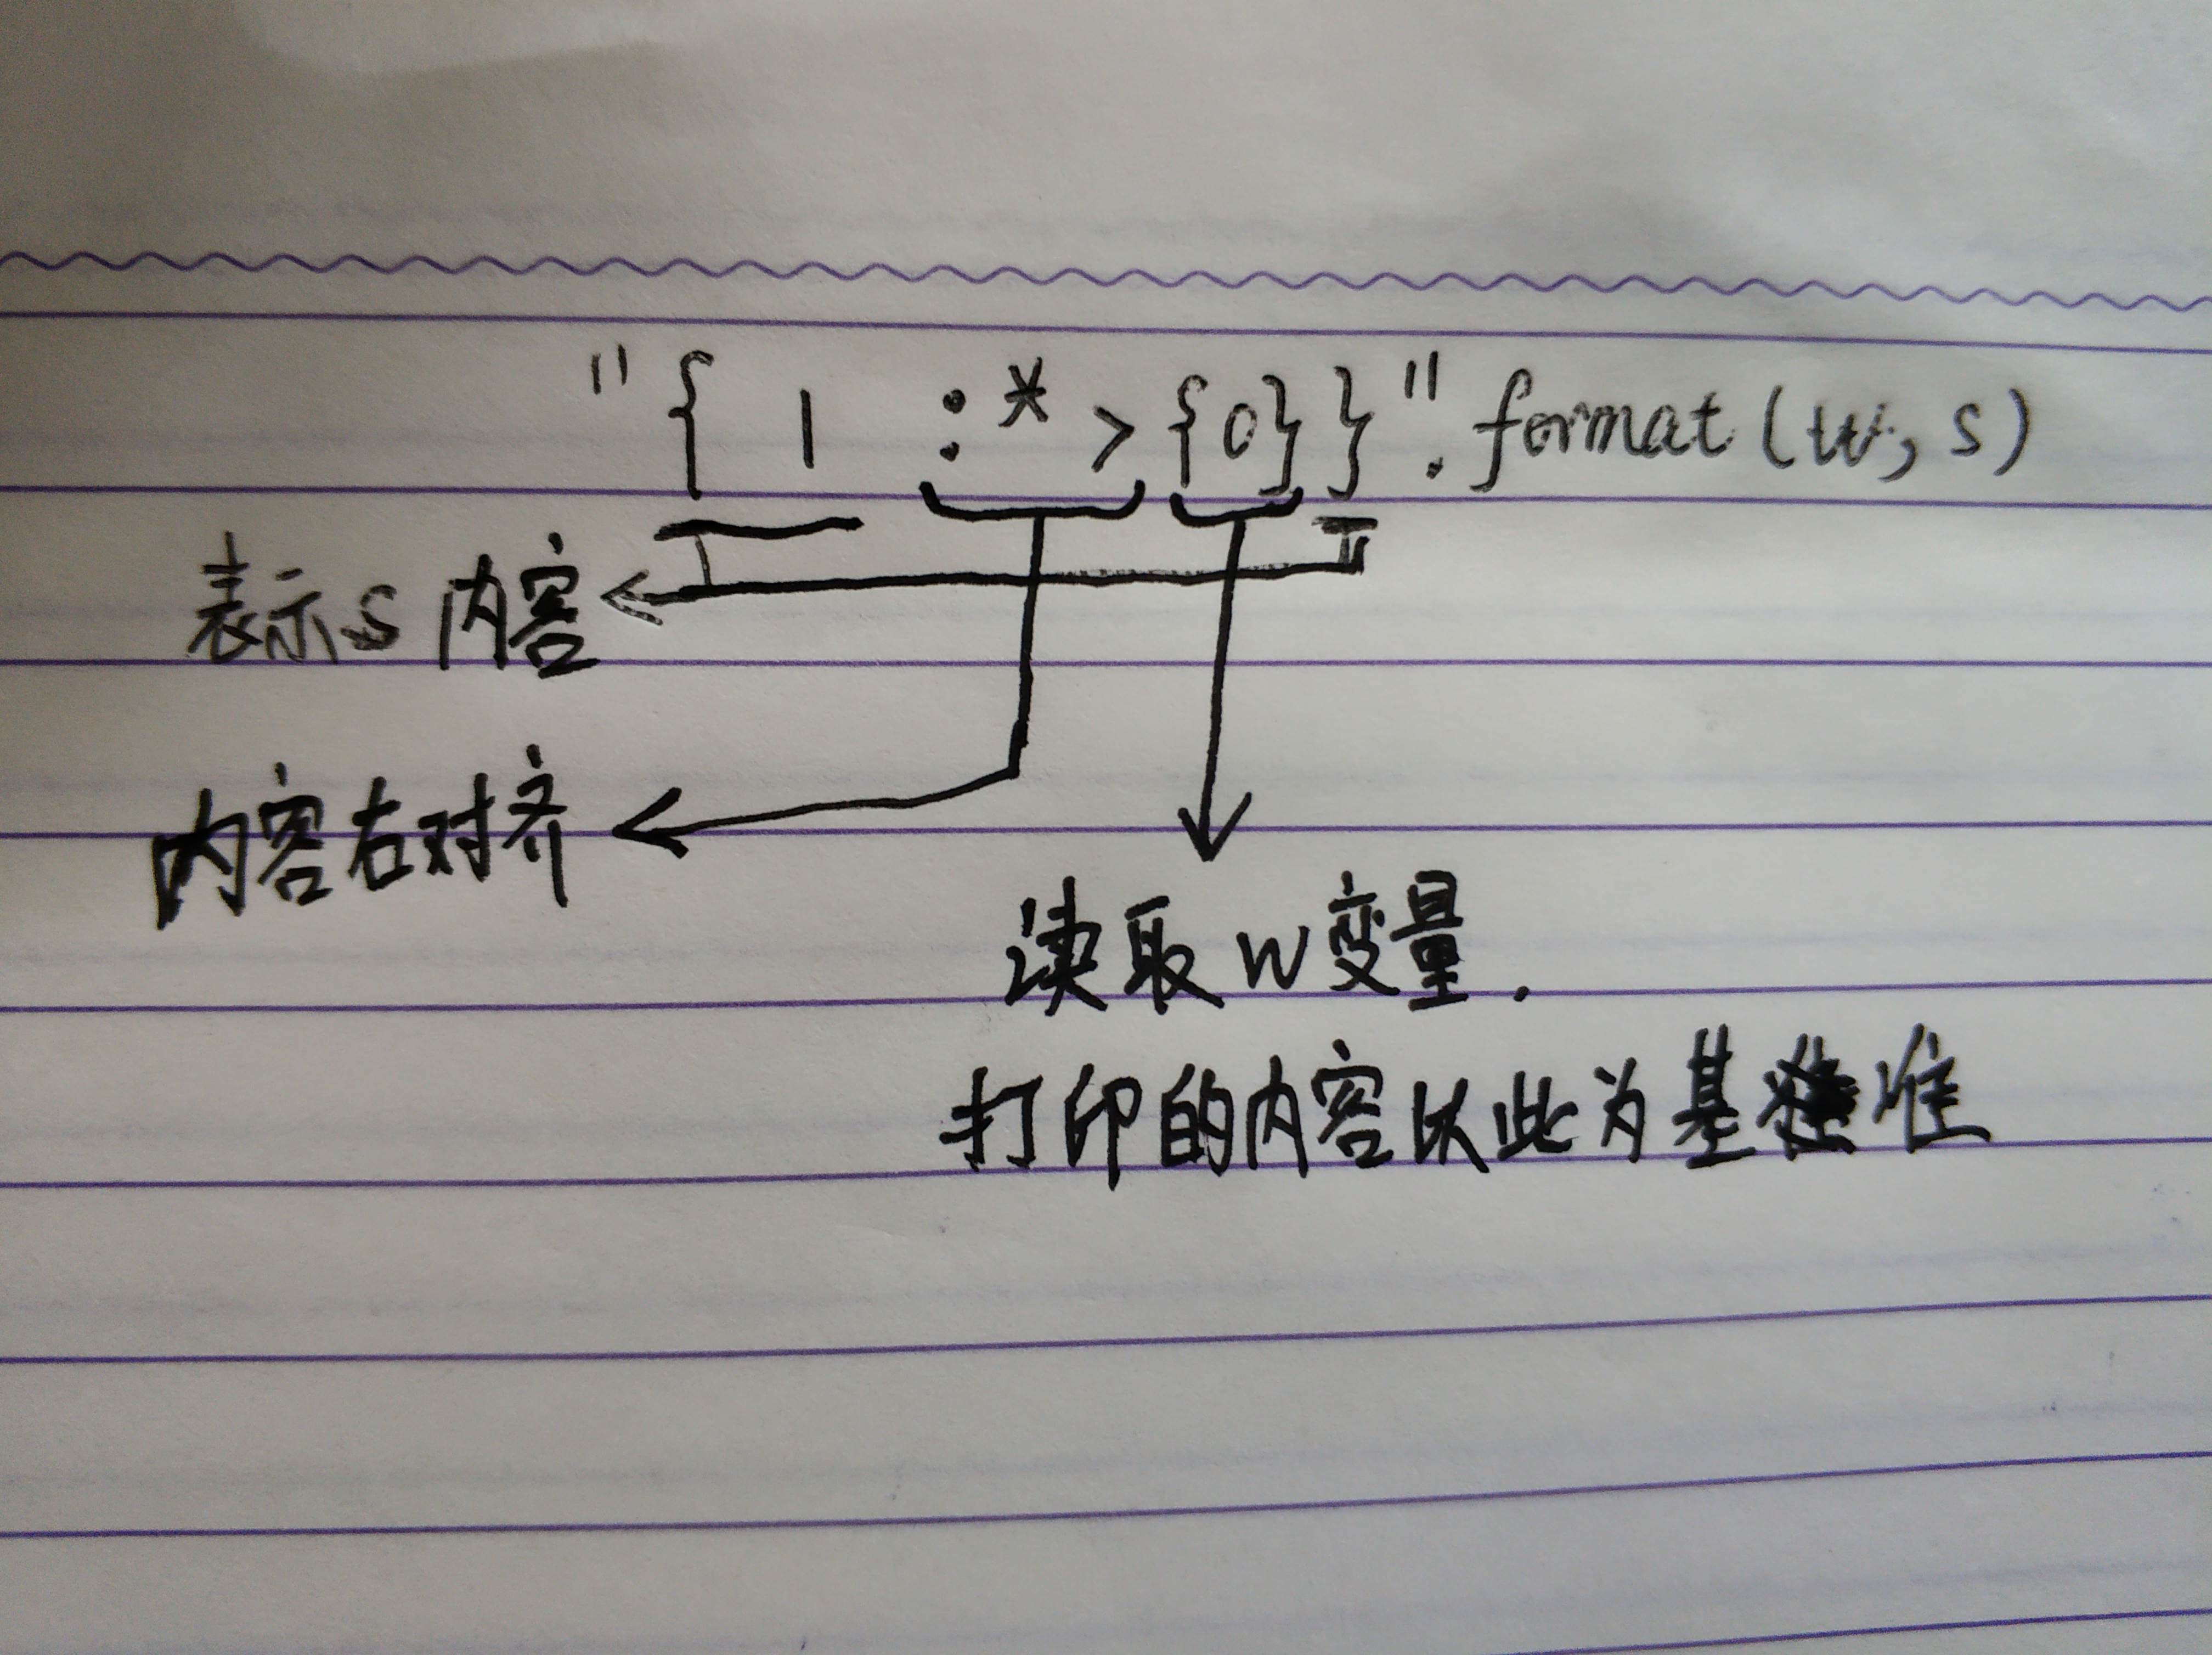 "{ 1 :* > {0}}".format(w,s)
表示s内容
内容右对齐
读取w变量.
打印的内容以此为基准